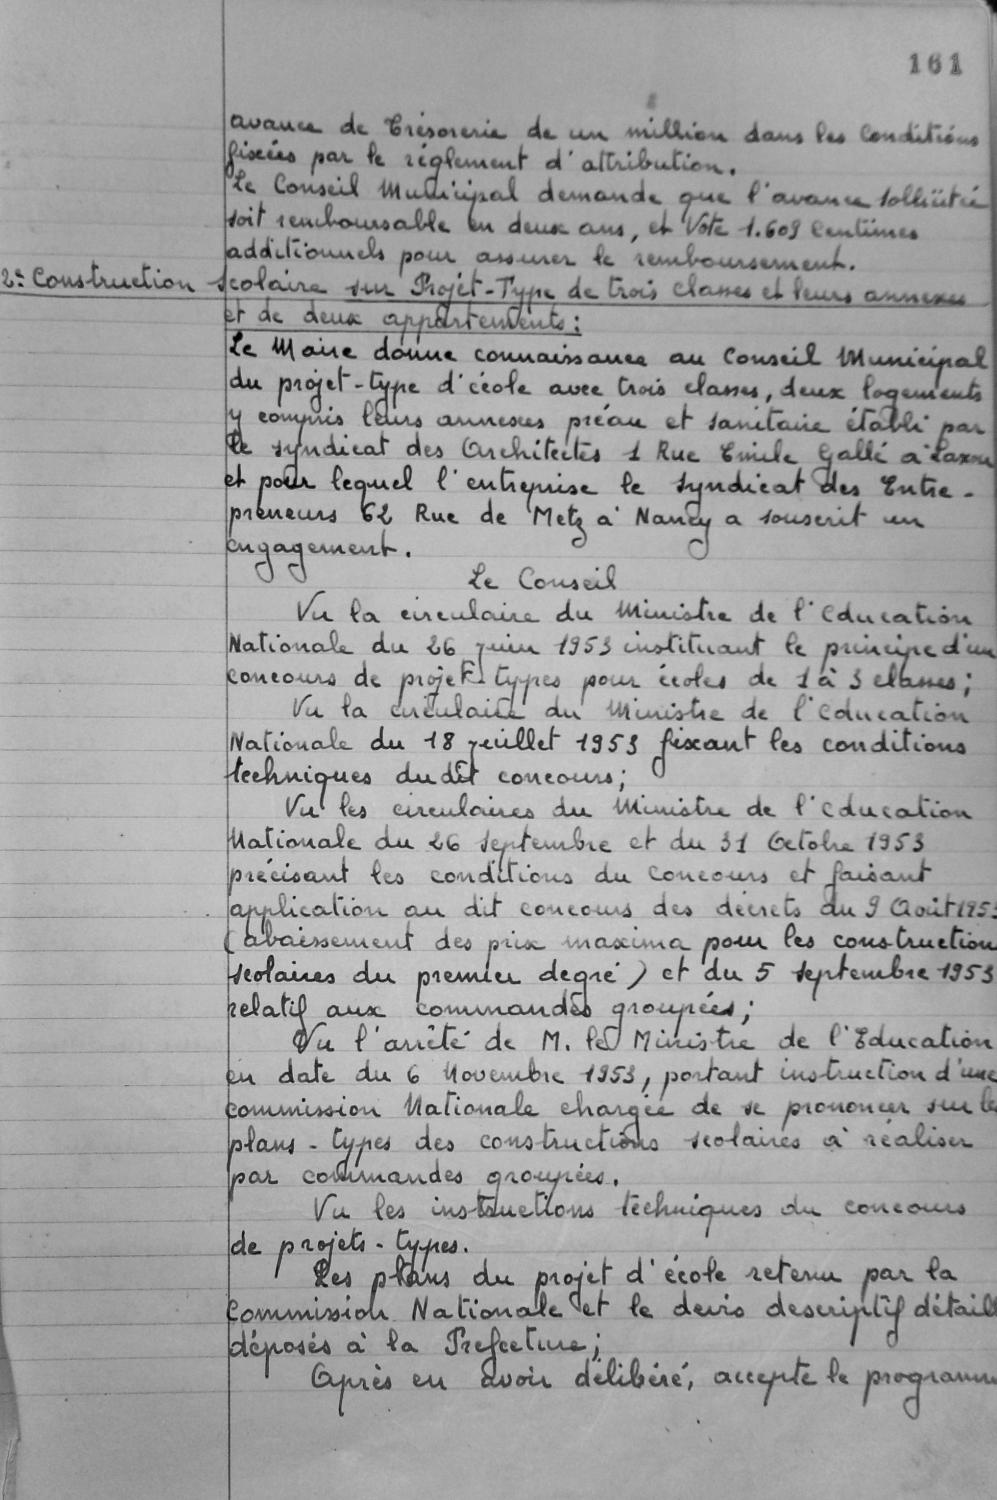 161
avance de Trésorerie de un million dans les Conditions
fixées par le réglement d'attribution.
Le Conseil Municipal demande que l'avance sollicitée
soit remboursable en deux ans, et Vote 1.609 Centimes
additionnels pour assurer le remboursement.
2º Construction scolaire sur Projet-Type de trois classes et leurs annexes
et de deux appartements:
Le Maire donne connaissance au Conseil Municipal
du projet-type d'école avec trois classes, deux logements
y compris leurs annexes préau et sanitaire établi par
le syndicat des Architectes 1 Rue Emile Gallé à Laxou
et pour lequel l'entreprise le Syndicat des Entre-
preneurs 62 Rue de Metz à Nancy a souscrit un
engagement.
Le Conseil
Vu la circulaire du Ministre de l'Education
Nationale du 26 juin 1953 instituant le principe d'un
concours de projet-types pour écoles de 1 à 3 classes;
Vu la circulaire du Ministre de l'Education
Nationale du 18 juillet 1953 fixant les conditions
techniques dudit concours;
Vu les circulaires du Ministre de l'Education
Nationale du 26 Septembre et du 31 Octobre 1953
précisant les conditions du Concours et faisant
application au dit concours des décrets du 9 Août 1953
(abaissement des prix maxima pour les construction
scolaires du premier degré) et du 5 septembre 1953
relatif aux commandes groupées;
Vu l'arrêté de M. le Ministre de l'Education
en date du 6 Novembre 1953, portant instruction d'une
commission Nationale chargée de se prononcer sur les
plans-types des constructions scolaires à réaliser
par commandes groupées.
Vu les instructions techniques du concours
de projets-types.
Les plans du projet d'école retenu par la
Commission Nationale et le devis descriptif détaill
déposés à la Préfecture;
Après en avoir délibéré, accepte le programme